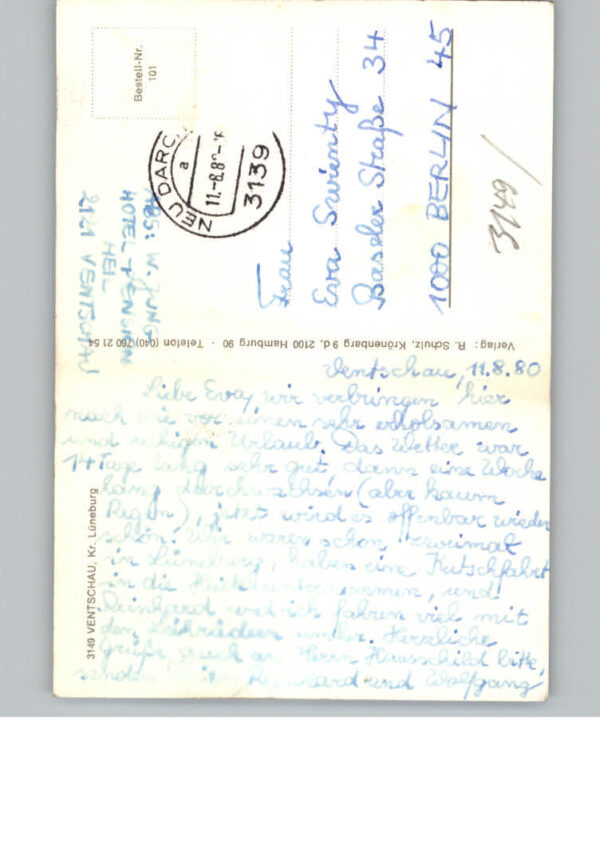 Bestell-Nr.
101
NEU DARCH
a
11.-8.8
3139
Abs: W. Jung
HOTEL-PENSION
HEIL
2121 VENTSCHAU
Frau
Eva Swinty
Baseler Straße 34
1000 BERLIN 45
3149/
Verlag: R. Schulz, Krönenbarg 9 d, 2100 Hamburg 90 · Telefon (040) 760 21 54
3149 VENTSCHAU, Kr. Lüneburg
Ventschau, 11.8.80
Liebe Eva, wir verbringen hier
nach wie vor einen sehr erholsamen
und ruhigen Urlaub. Das Wetter war
14 Tage lang sehr gut, dann eine Woche
lang durchwachsen (aber kaum
Regen), jetzt wird es offenbar wieder
schön! Wir waren schon zweimal
in Lüneburg, haben eine Kutschfahrt
in die Heide unternommen, und
Reinhard und ich fahren viel mit
den Fahrrädern umher. Herzliche
Grüße, auch an Herrn Hausschild bitte,
senden und Wolfgang